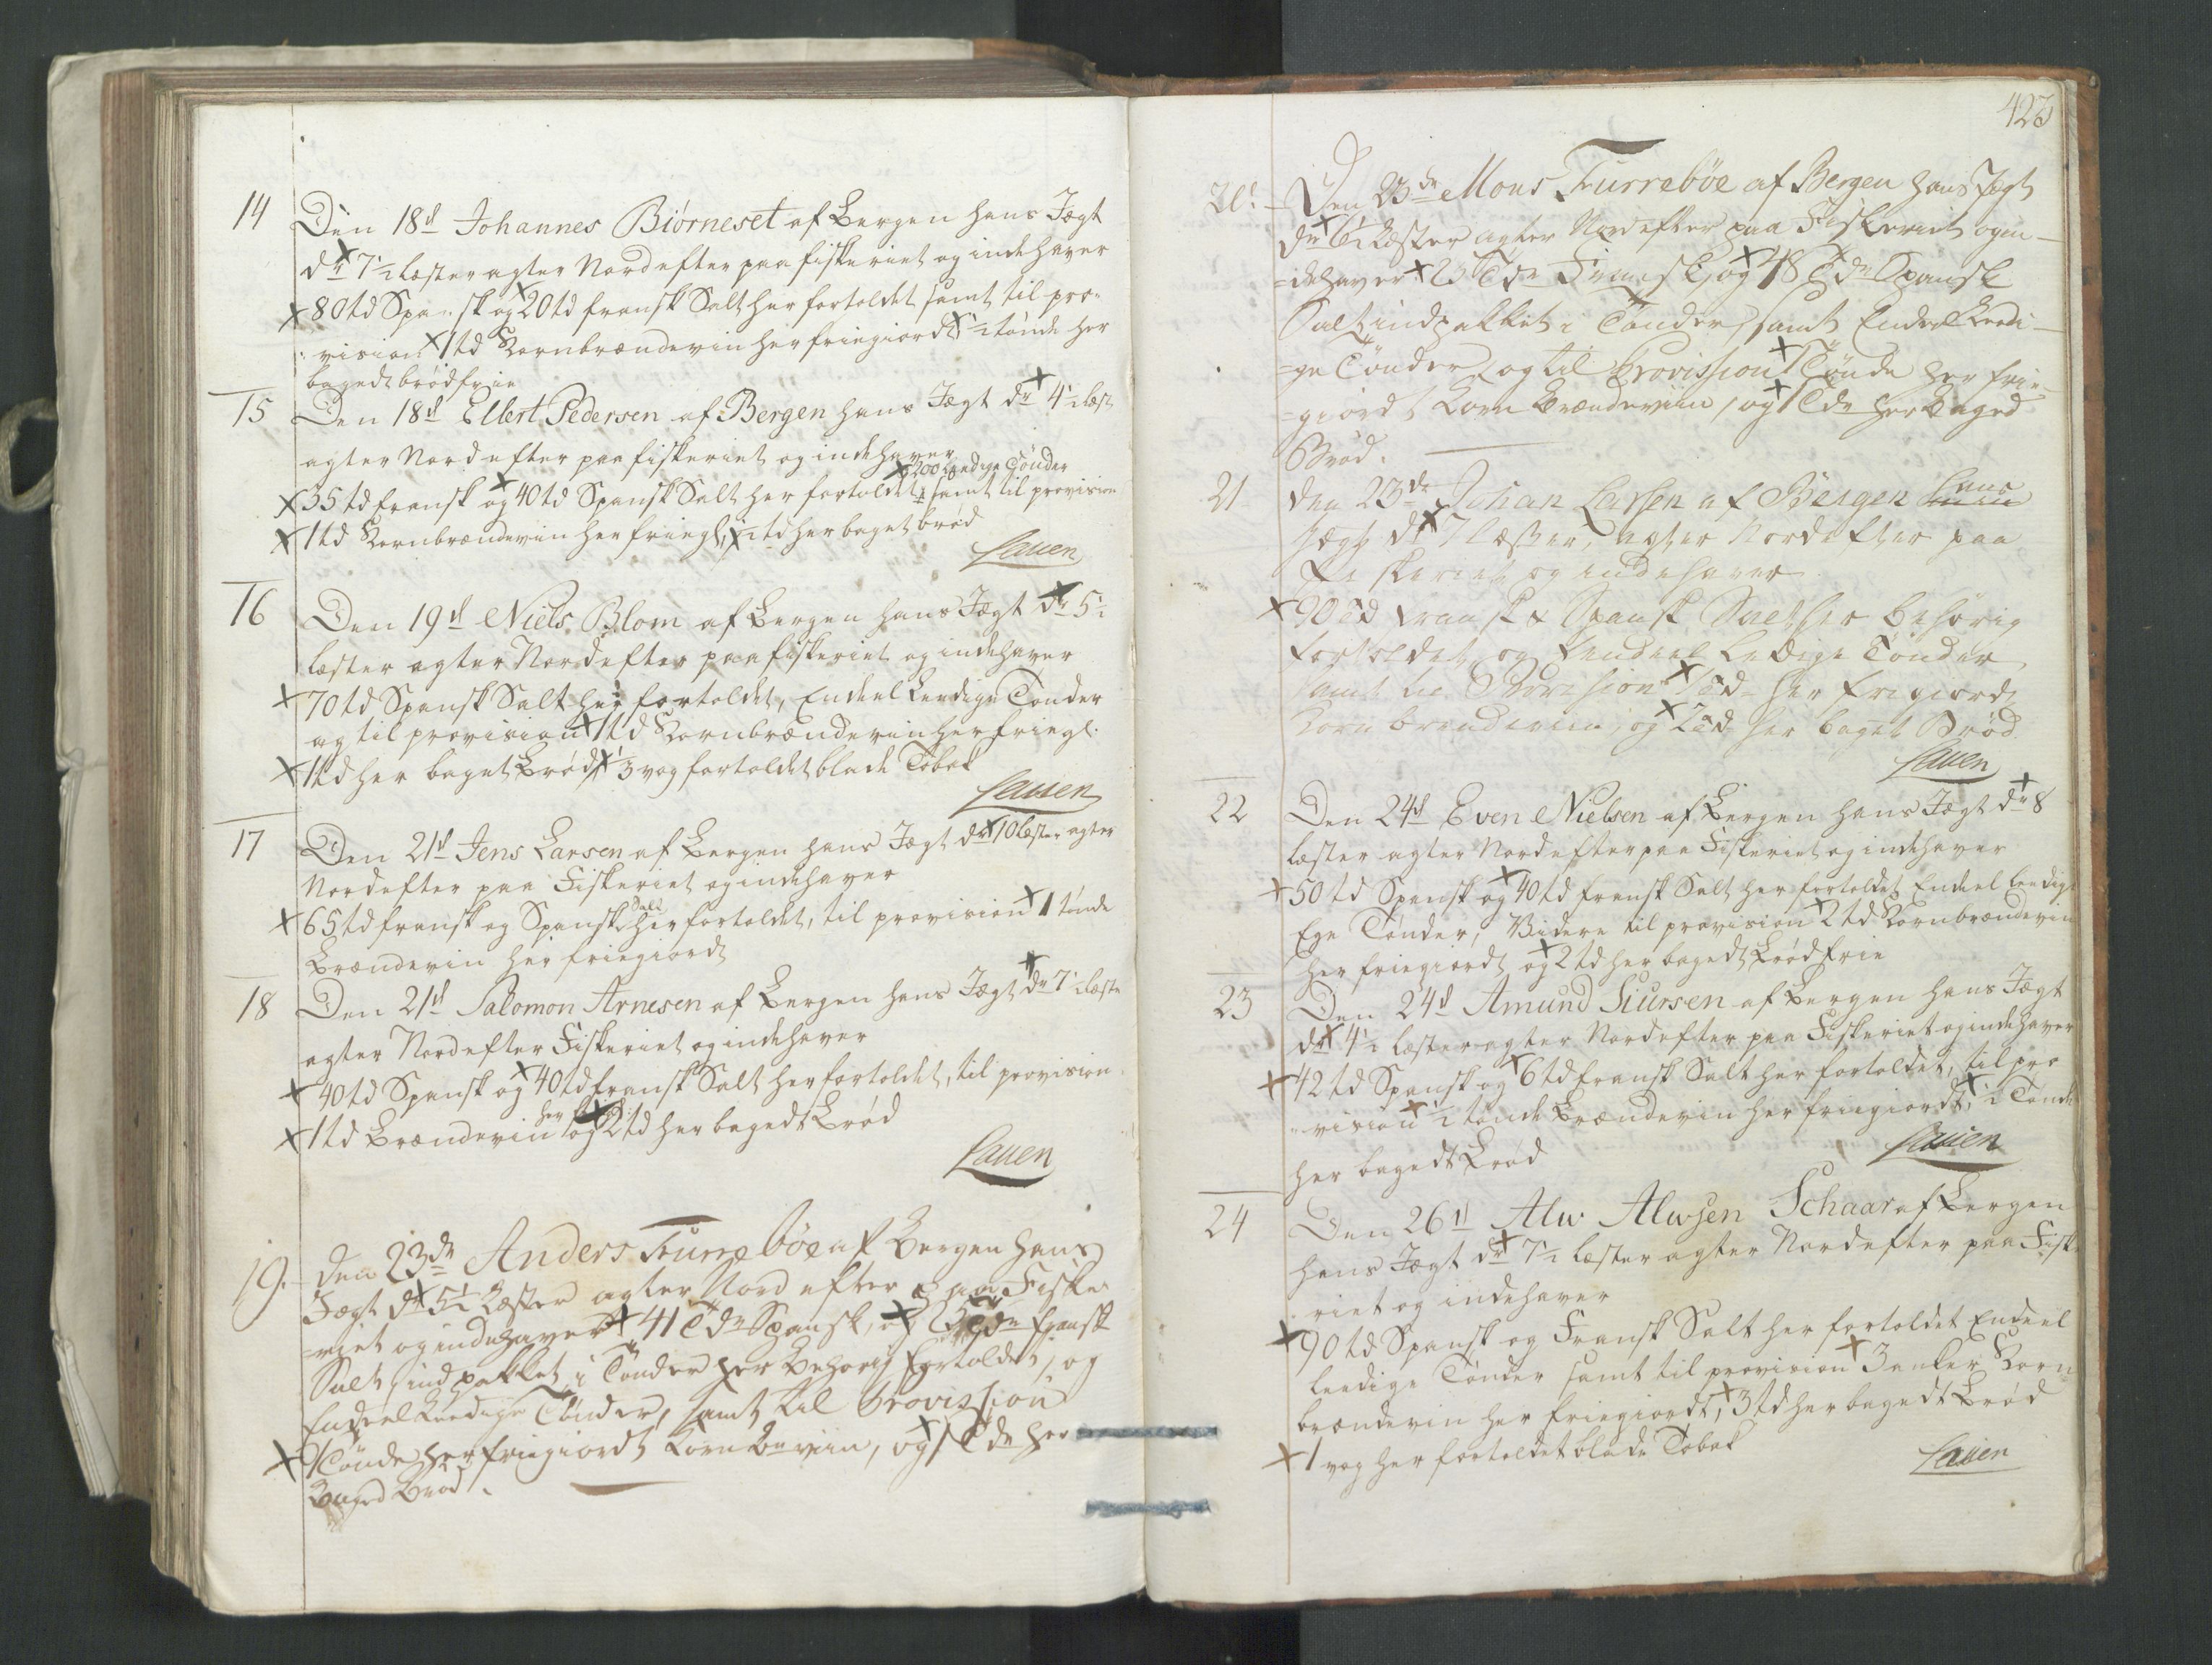 14 Den 18d Johannes Biörneset af Bergen hans Jægt
dr 7½ læster agter Nord efter paa fiskeriet og indehaver
80 td Spansk og 20 td fransk Salt her fortoldet samt til pro-
vision 1 td Kornbrændevin her friegiordt ½ tönde her
bagedt brød frie
15 Den 18d Elbert Pedersen af Bergen hans Jægt dr 4½ læst
agter Nord efter paa fiskeriet og indehaver
200 Ledige Tönder
35 td fransk og 40 td Spansk Salt her fortoldet samt til provision
1 td Kornbrændeviin her friegl, ½ td her baget brød
Lauen
16 Den 19d Niels Blom af Bergen hans Jægt dr 5½
læster agter Nord efter paa fiskeriet og indehaver
70 td Spansk Salt her fortoldet, Endeel Leedige Tönder
og til provision 1 td Kornbrændevin her friegl.
1 td her baget Brød, ⅓ vog fortoldet blade Tobak
Lauen
17 Den 21d Jens Larsen af Bergen hans Jægt dr 10 læster agter
Nord efter paa Fiskeriet og indehaver
65 td fransk og Spansk Salt her fortoldet, til provision 1 tönde
Brændevin her friegiordt
18 Den 21d Salomon Arnesen af Bergen hans Jægt dr 7½ læster
agter Nord efter Fiskeriet og indehaver
40 td Spansk og 40 td fransk Salt her fortoldet, til provision
1 td Brændevin her og 2 td her bagedt Brød
Lauen
19. Den 23de Anders Furrebøe af Bergen hans
Jægt dr 5½ Læster agter Nord efter paa Fiske-
=riet og indehaver 41 Tdr Spansk, og Tdr fransk
Salt indpakket i Tönder her Behörig Fortoldet, og
Endeel Leedige Tönder, samt til Provission
1 Tönde her friegiordt Korn Bn viin, og 1 Tde her
Baged Brød.
423
20. Den 23de Mons Furrebøe af Bergen hans Jægt
dr 6½ Læster agter Nord efter paa Fiskeriet og in-
=dehaver 20 Tdr Fransk, og 48 Tdr Spansk
Salt indpakket i Tönder, samt Endeel Leedi-
=ge Tönder, og til Provission 1 Tönde her frie-
=giordt Korn Brændeviin, og 1 Tde her Baged
Brød.
21 Den 23de Johan Larsen af Bergen hans
Jægt dr 7 Læster, agter Nord efter paa
Fiskeriet og indehaver
90 td Fransk & Spansk Salt her behörig
fortoldet og Eendeel Ledige Tönder,
samt til Provision 1 td her frigiordt
Korn brendeviin, og 2 td her baget Brød
Lauen
22 Den 24d Even Nielsen af Bergen hans Jægt dr 8
læster agter Nord efter paa Fiskeriet og indehaver
50 td Spansk og 40 td fransk Salt her fortoldet Endeel leedige
Ege Tönder, Videre til provision 2 td Kornbrændevin
her friegiordt og 2 td her bagedt Brød frie
23 Den 24d Amund Siursen af Bergen hans Jægt
dr 4½ læster agter Nord efter paa Fiskeriet og indehaver
42 td Spansk og 6 td fransk Salt her fortoldet, til pro
vision ½ tönde Brændevin her friegiordt, ½ Tönde
her bagedt Brød
Lauen
24 Den 26d Alw Alwsen Schaar af Bergen
hans Jægt dr 7½ læster agter Nord efter paa Fiske
riet og indehaver
90 td Spansk og Fransk Salt her fortoldet Endeel
leedige Tönder samt til provision 3 anker Korn-
brændevin her friegiordt, 3 td her bagedt Brød
1 vog her fortoldet blade Tobak
Lauen